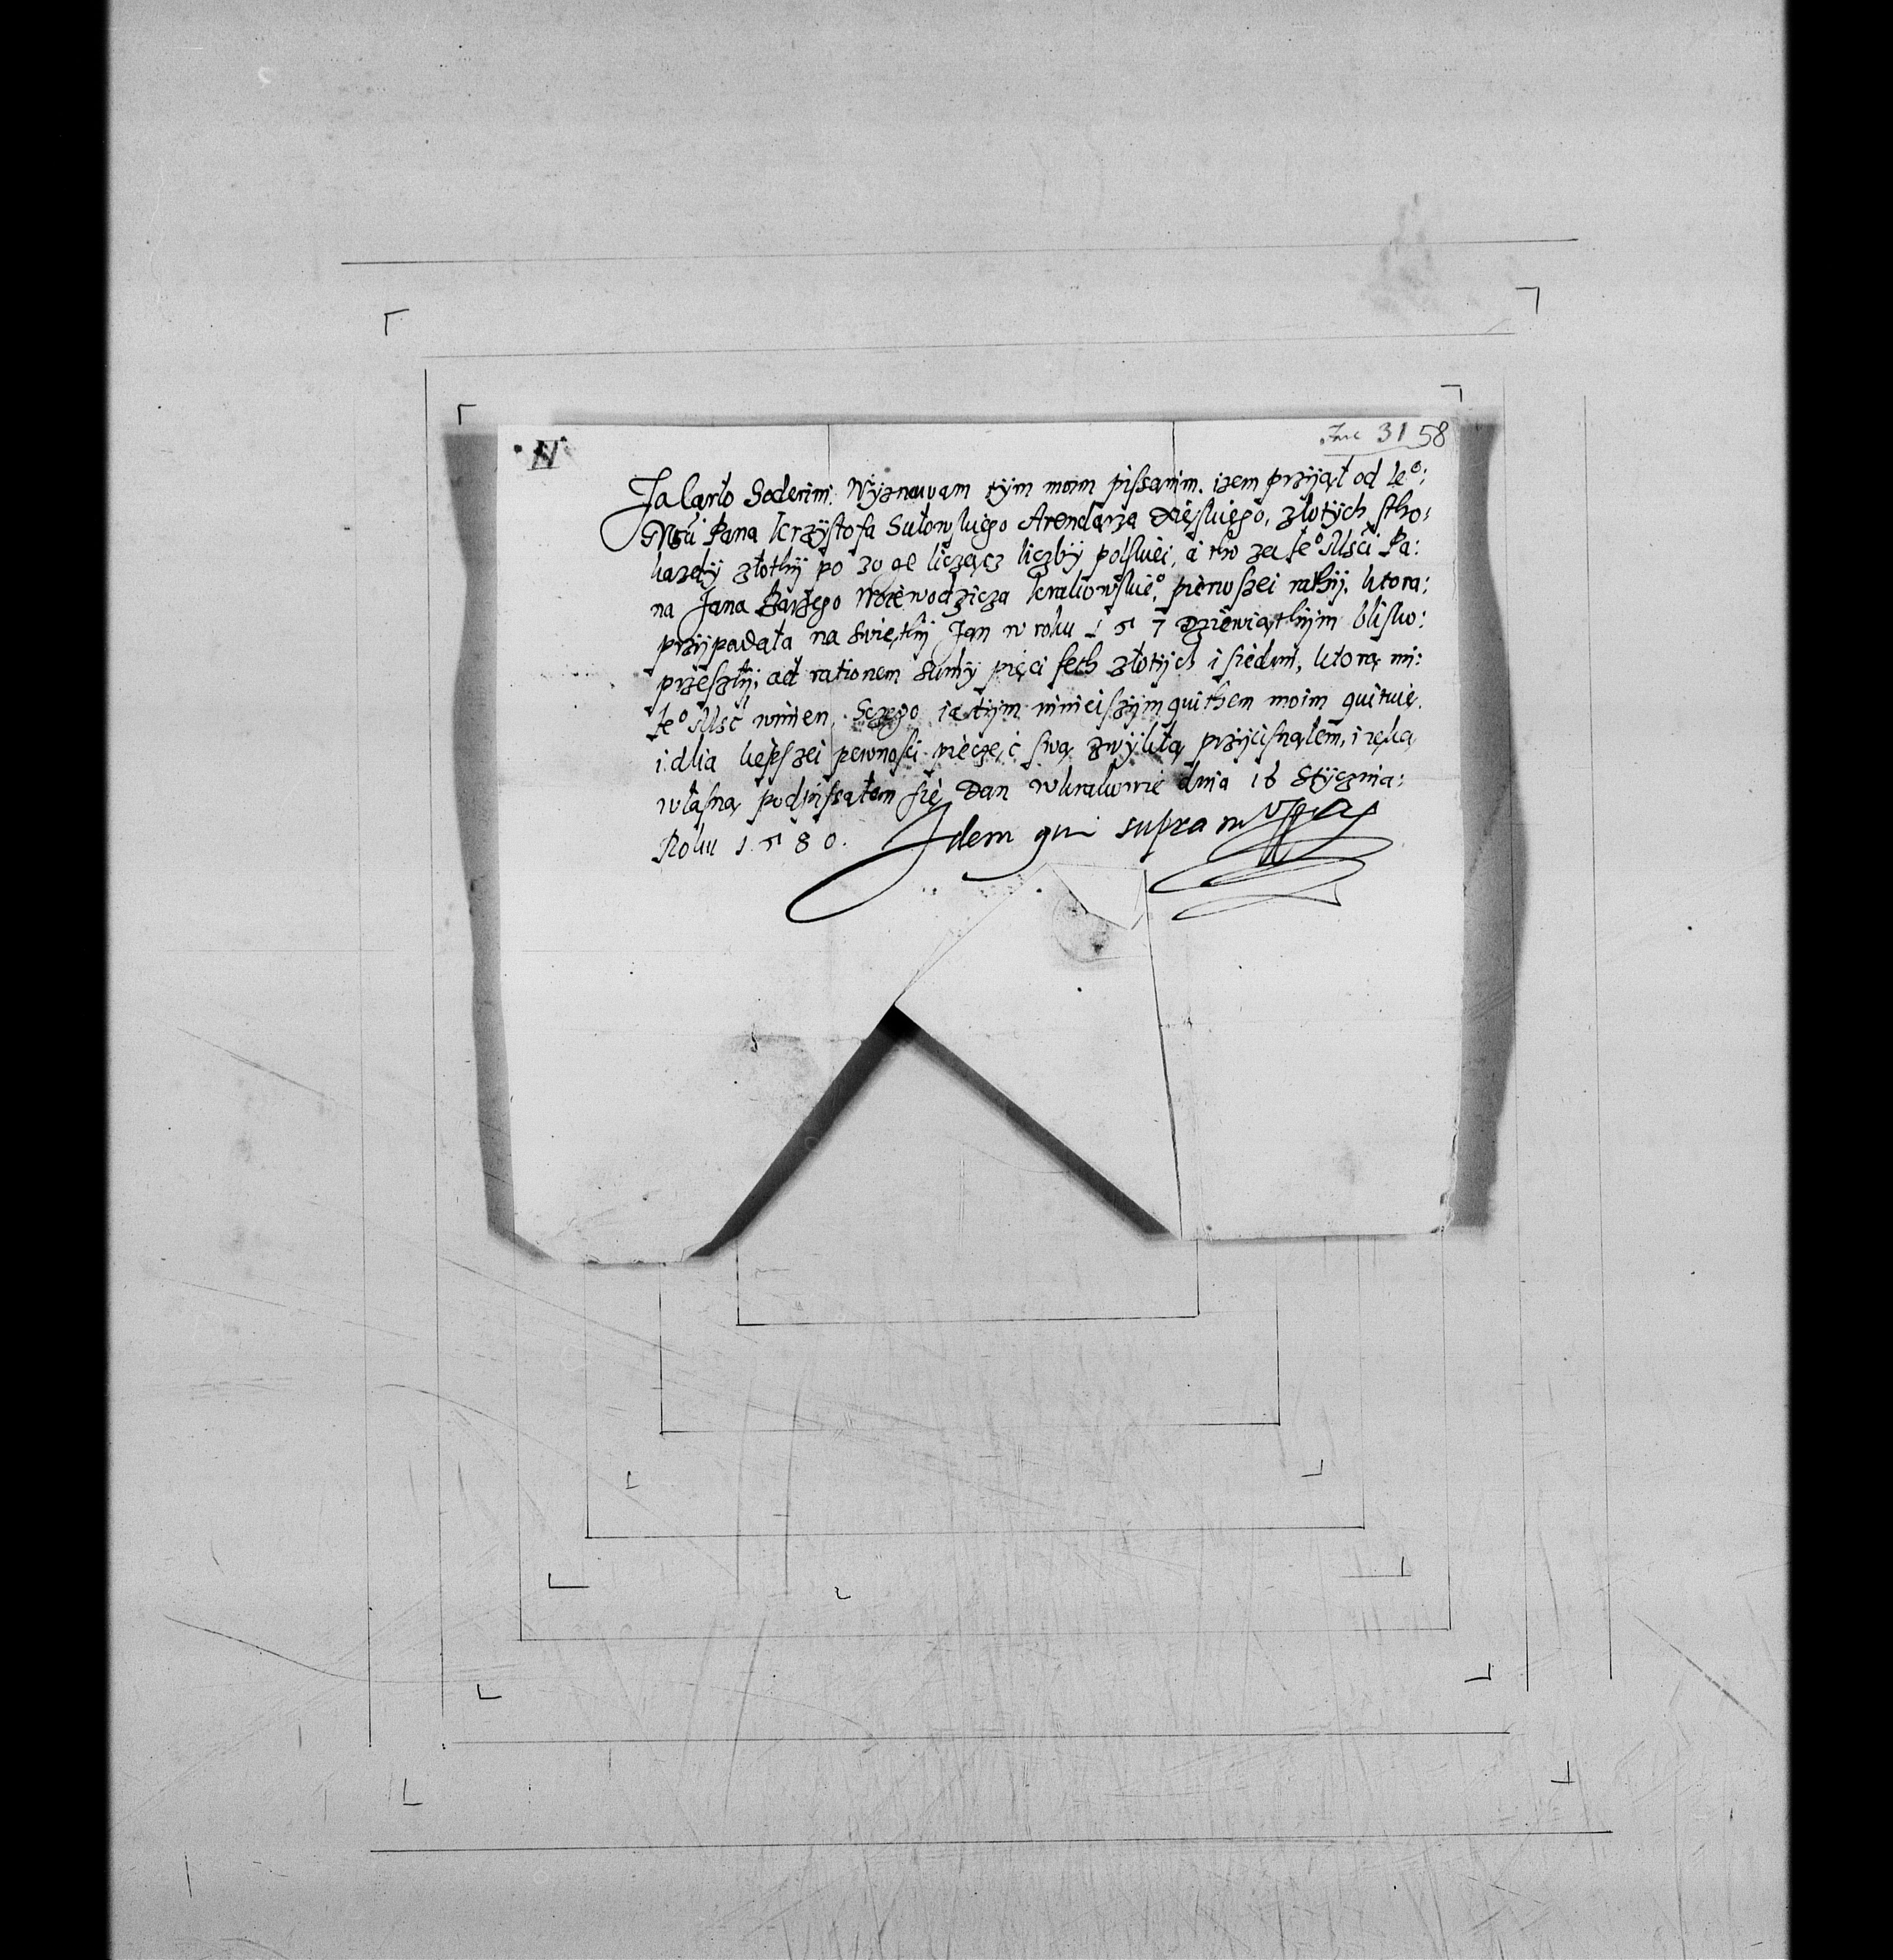 N
Inc 31 58
Ja Carlo Soderini Wyznawam tym moim pissanim. izem przijął od Ieº:
Mści Pana Krzÿstofa Sułowskiego Arendarza złotÿch stho:
kazdÿ złothÿ po 30 ge licząc liczbÿ polskiei, a tho za Ieº Mści Pa:
na Jana Barzego Woiewodzicza Krakowskieº, pierwszei rathÿ. ktora:
przÿpadała na Swięthÿ Jan w roku 157 Dziewiąthÿm blisko:
przeszłÿ, ad rationem Sumÿ pięci seth złotÿch i siedmi, ktorą mi:
Ieº Mść winien, Sczego ia tÿm ninieiszÿm quithem moim quituię.
i dlia liepszei pewnosci pieczęć swą zwÿkłą przÿcisnąłem, i ręką
własną podpissałem się Dan w krakowie dnia 16 Stÿcznia:
Roku 1580. Idem qui supra